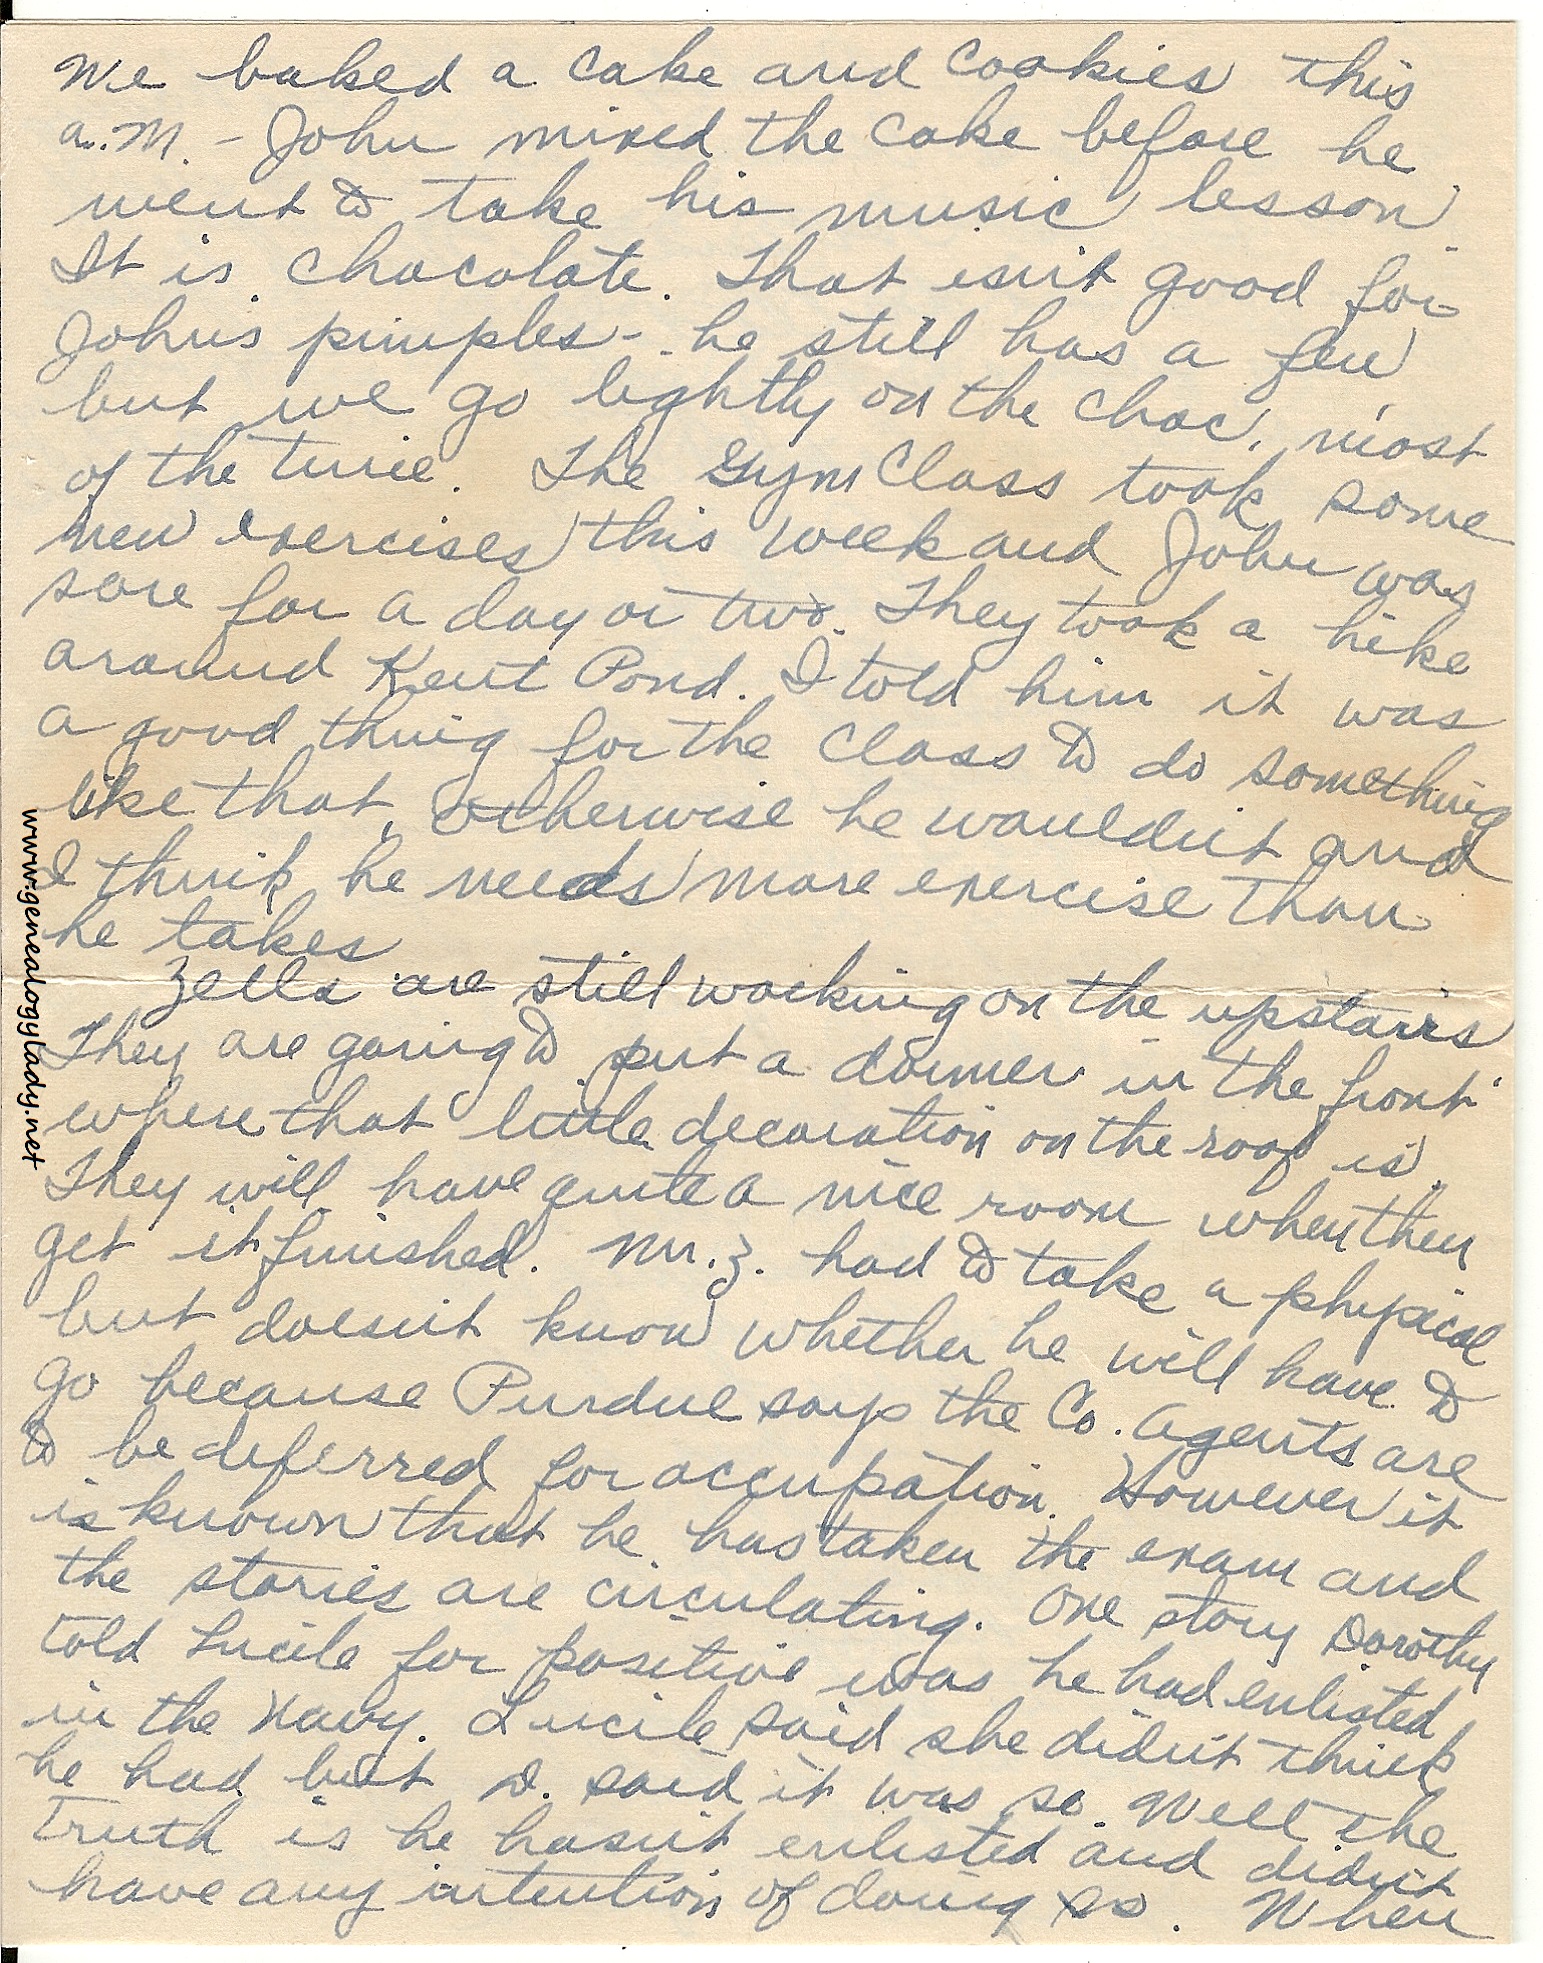 We baked a cake and cookies this
a.m. - John mixed the cake before he
went to take his music lesson.
It is chocolate. That isn't good for
John's pimples - he still has a few
but we go lightly on the choc. most
of the time. The Gym Class took some
new exercises this week and John was
sore for a day or two. They took a hike
around Kent Pond. I told him it was
a good thing for the class to do something
like that, otherwise he wouldn't and
I think he needs more exercise than
he takes
Zells are still working on the upstairs
They are going to put a dormer in the front
where that little decoration on the roof is.
They will have quite a nice room when they
get it finished. Mr. Z. had to take a physical
but doesn't know whether he will have to
go because Purdue says the Co. Agents are
to be deferred for occupation. However it
is known that he has taken the exam and
the stories are circulating. One story Dorothy
told Lucile for positive was he had enlisted
in the Navy. Lucile said she didn't think
he had but D. said it was so. Well the
truth is he hasn't enlisted and didn't
have any intention of doing so. When
www.genealogylady.net